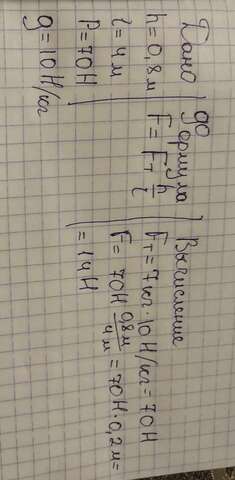 Дано
h=0,8м
l=4м
P=70Н
g=10Н/кг
формула
F=Fт h/l
Вычисление
Fт=7кг·10Н/кг=70Н
F=70Н 0,8м/4м=70Н·0,2м=
=14Н